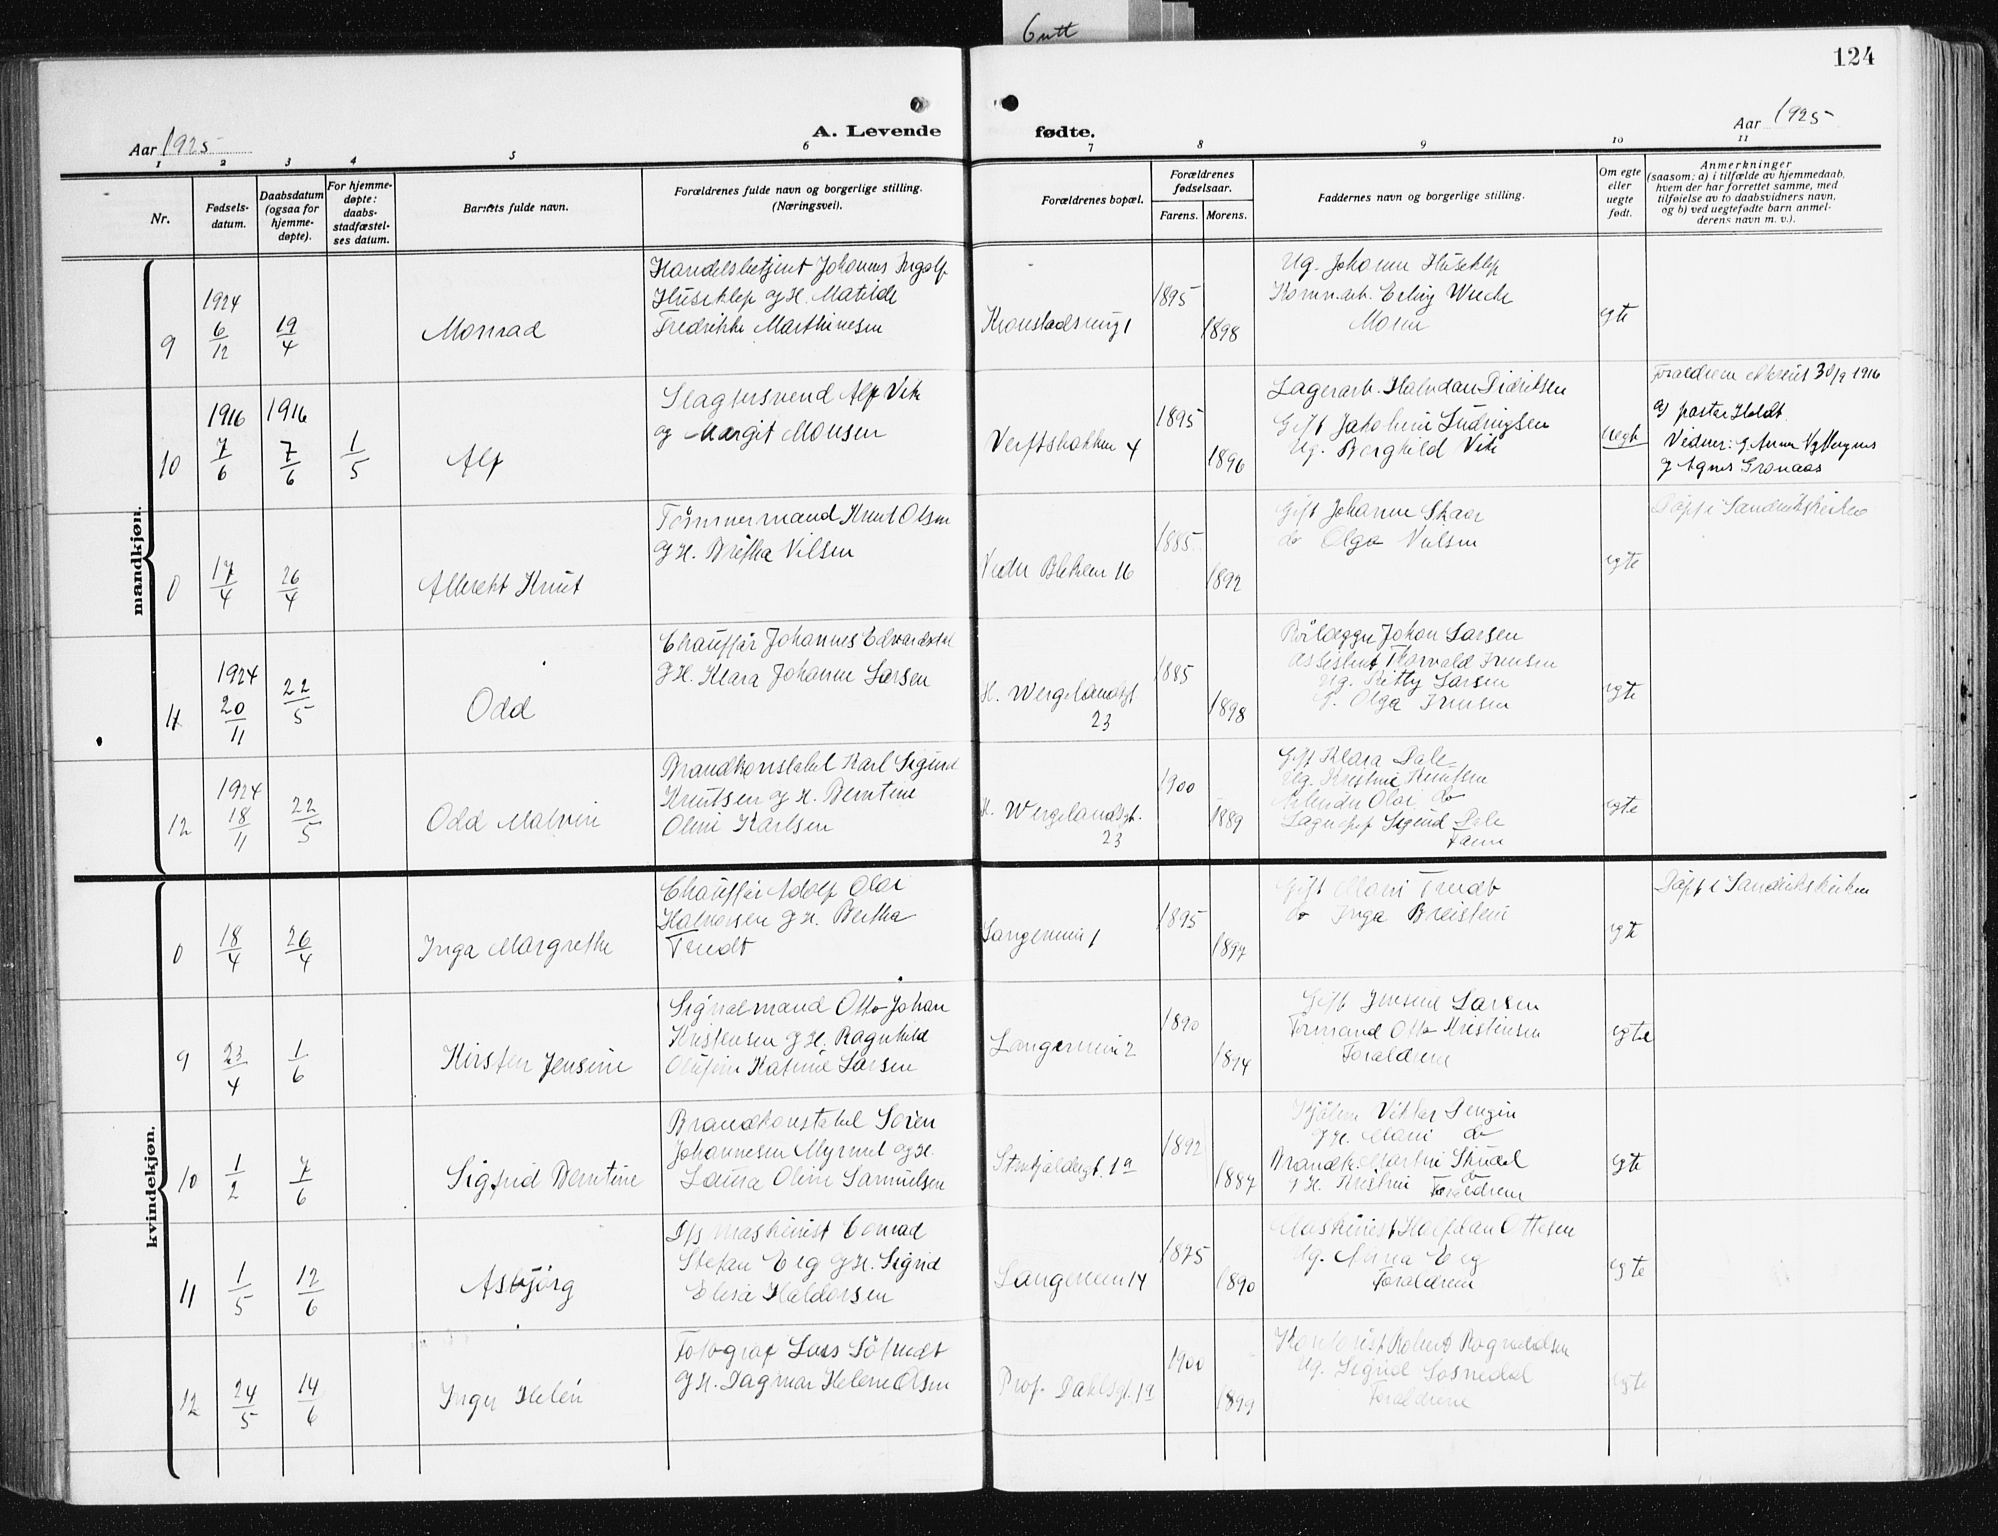 6 utt
124
Aar 1925
A. Levende fødte.
Aar 1925
1 2 3 4 5 6 7 8 9 10 11
Nr.
Fødsels-
datum.
Daabsdatum
(ogsaa for
hjemme-
døpte).
For hjemme-
døpte:
daabs-
stadfæstel-
ses datum.
Barnets fulde navn.
Forældrenes fulde navn og borgerlige stilling.
(Næringsvei).
Forældrenes bopæl.
Forældrenes
fødselsaar.
Farens. Morens.
Faddernes navn og borgerlige stilling.
Om egte
eller
uegte
født.
Anmerkninger
(saasom: a) i tilfælde av hjemmedaab,
hvem der har forrettet samme, med
tilføielse av to daabsvidners navn,
og b) ved uegtefødte barn anmel-
derens navn m. v.).
mandkjøn.
9
1924
6/12
19/4
Monrad
Handelsbetjent Johannes Ingolf
Huseklep og H. Matilde
Fredrikke Marthinesen
Kronstadsvei 1
1895
1898
Ug. Johanne Huseklep
Moren
egte
10
1916
7/6
1916
7/6
1/5
Alf
Slagtersvend Alf Vik
og Margit Monsen
Verftsbakken 4
1895
1896
Lagerarb. Halvdan Didriksen
Gift Jakobine Ludvigsen
Ug. Berghild Vik
uegte
Forældrene ekteviet 30/9 1916
a) pastor Holdt.
Vidner: J. Anna Nygaard
og Agnes Grønaas
0
17/4
26/4
Albrekt Knut
Tømmermand Knut Olsen
og H. Bertha Nilsen
Nedre Blekevn 16
1885
1892
Gift Johanne Skaar
do Olga Nielsen
egte
Døpt i Sandvikskirken
11
1924
20/11
22/5
Odd
Chauffør Johannes Edvardsdal
og H. Klara Johanne Larsen
H. Wergelandsgt.
23
1885
1898
Rørlægger Johan Larsen
Assistent Thorvald Iversen
Ug. Kitty Larsen
G. Olga Iversen
egte
12
1924
18/11
22/5
Odd Malvin
Brandkonstabel Karl Sigurd
Knutsen og H. Berntine
Oline Karlsen
H. Wergelandsgt.
23
1900
1889
Gift Klara Dale
Ug. Kristine Knutsen
Arbeider Olai do
Lagerexp Sigurd Dale
Faren
egte
kvindekjøn.
0
18/4
26/4
Inga Margrethe
Chauffør Adolf Olai
Halvorsen og H. Bertha
Tvedt
Langevei 1
1895
1897
Gift Marie Tvedt
do Inga Breistein
egte
Døpt i Sandvikskirken
9
23/4
1/6
Kirsten Jensine
Signalmand Otto Johan
Kristensen og H. Ragnhild
Olufine Katrine Larsen
Langevei 2
1890
1894
Gift Jensine Larsen
Formand Otto Kristensen
Forældrene
egte
10
1/2
7/6
Sigfrid Berntine
Brandkonstabel Søren
Johannesen Myrmel og H.
Laura Oline Samuelsen
1a
1892
1887
og H. Marie do
Forældrene
egte
11
1/5
12/6
Asbjørg
D/s maskinist Conrad
Stefan Eeg og H. Sigrid
Elisa Haldorsen
Langevei 14
1875
1890
Maskinist Halfdan Ottesen
Ug. Anna Eeg
Forældrene
egte
12
24/5
14/6
Inger Helén
Fotograf Lars Söfnedt
og H. Dagmar Helene Olsen
Prof. Dahlsgt. 1a
1900
1899
Kontorist Robert Rognaldsen
Ug. Sigrid
Forældrene
egte